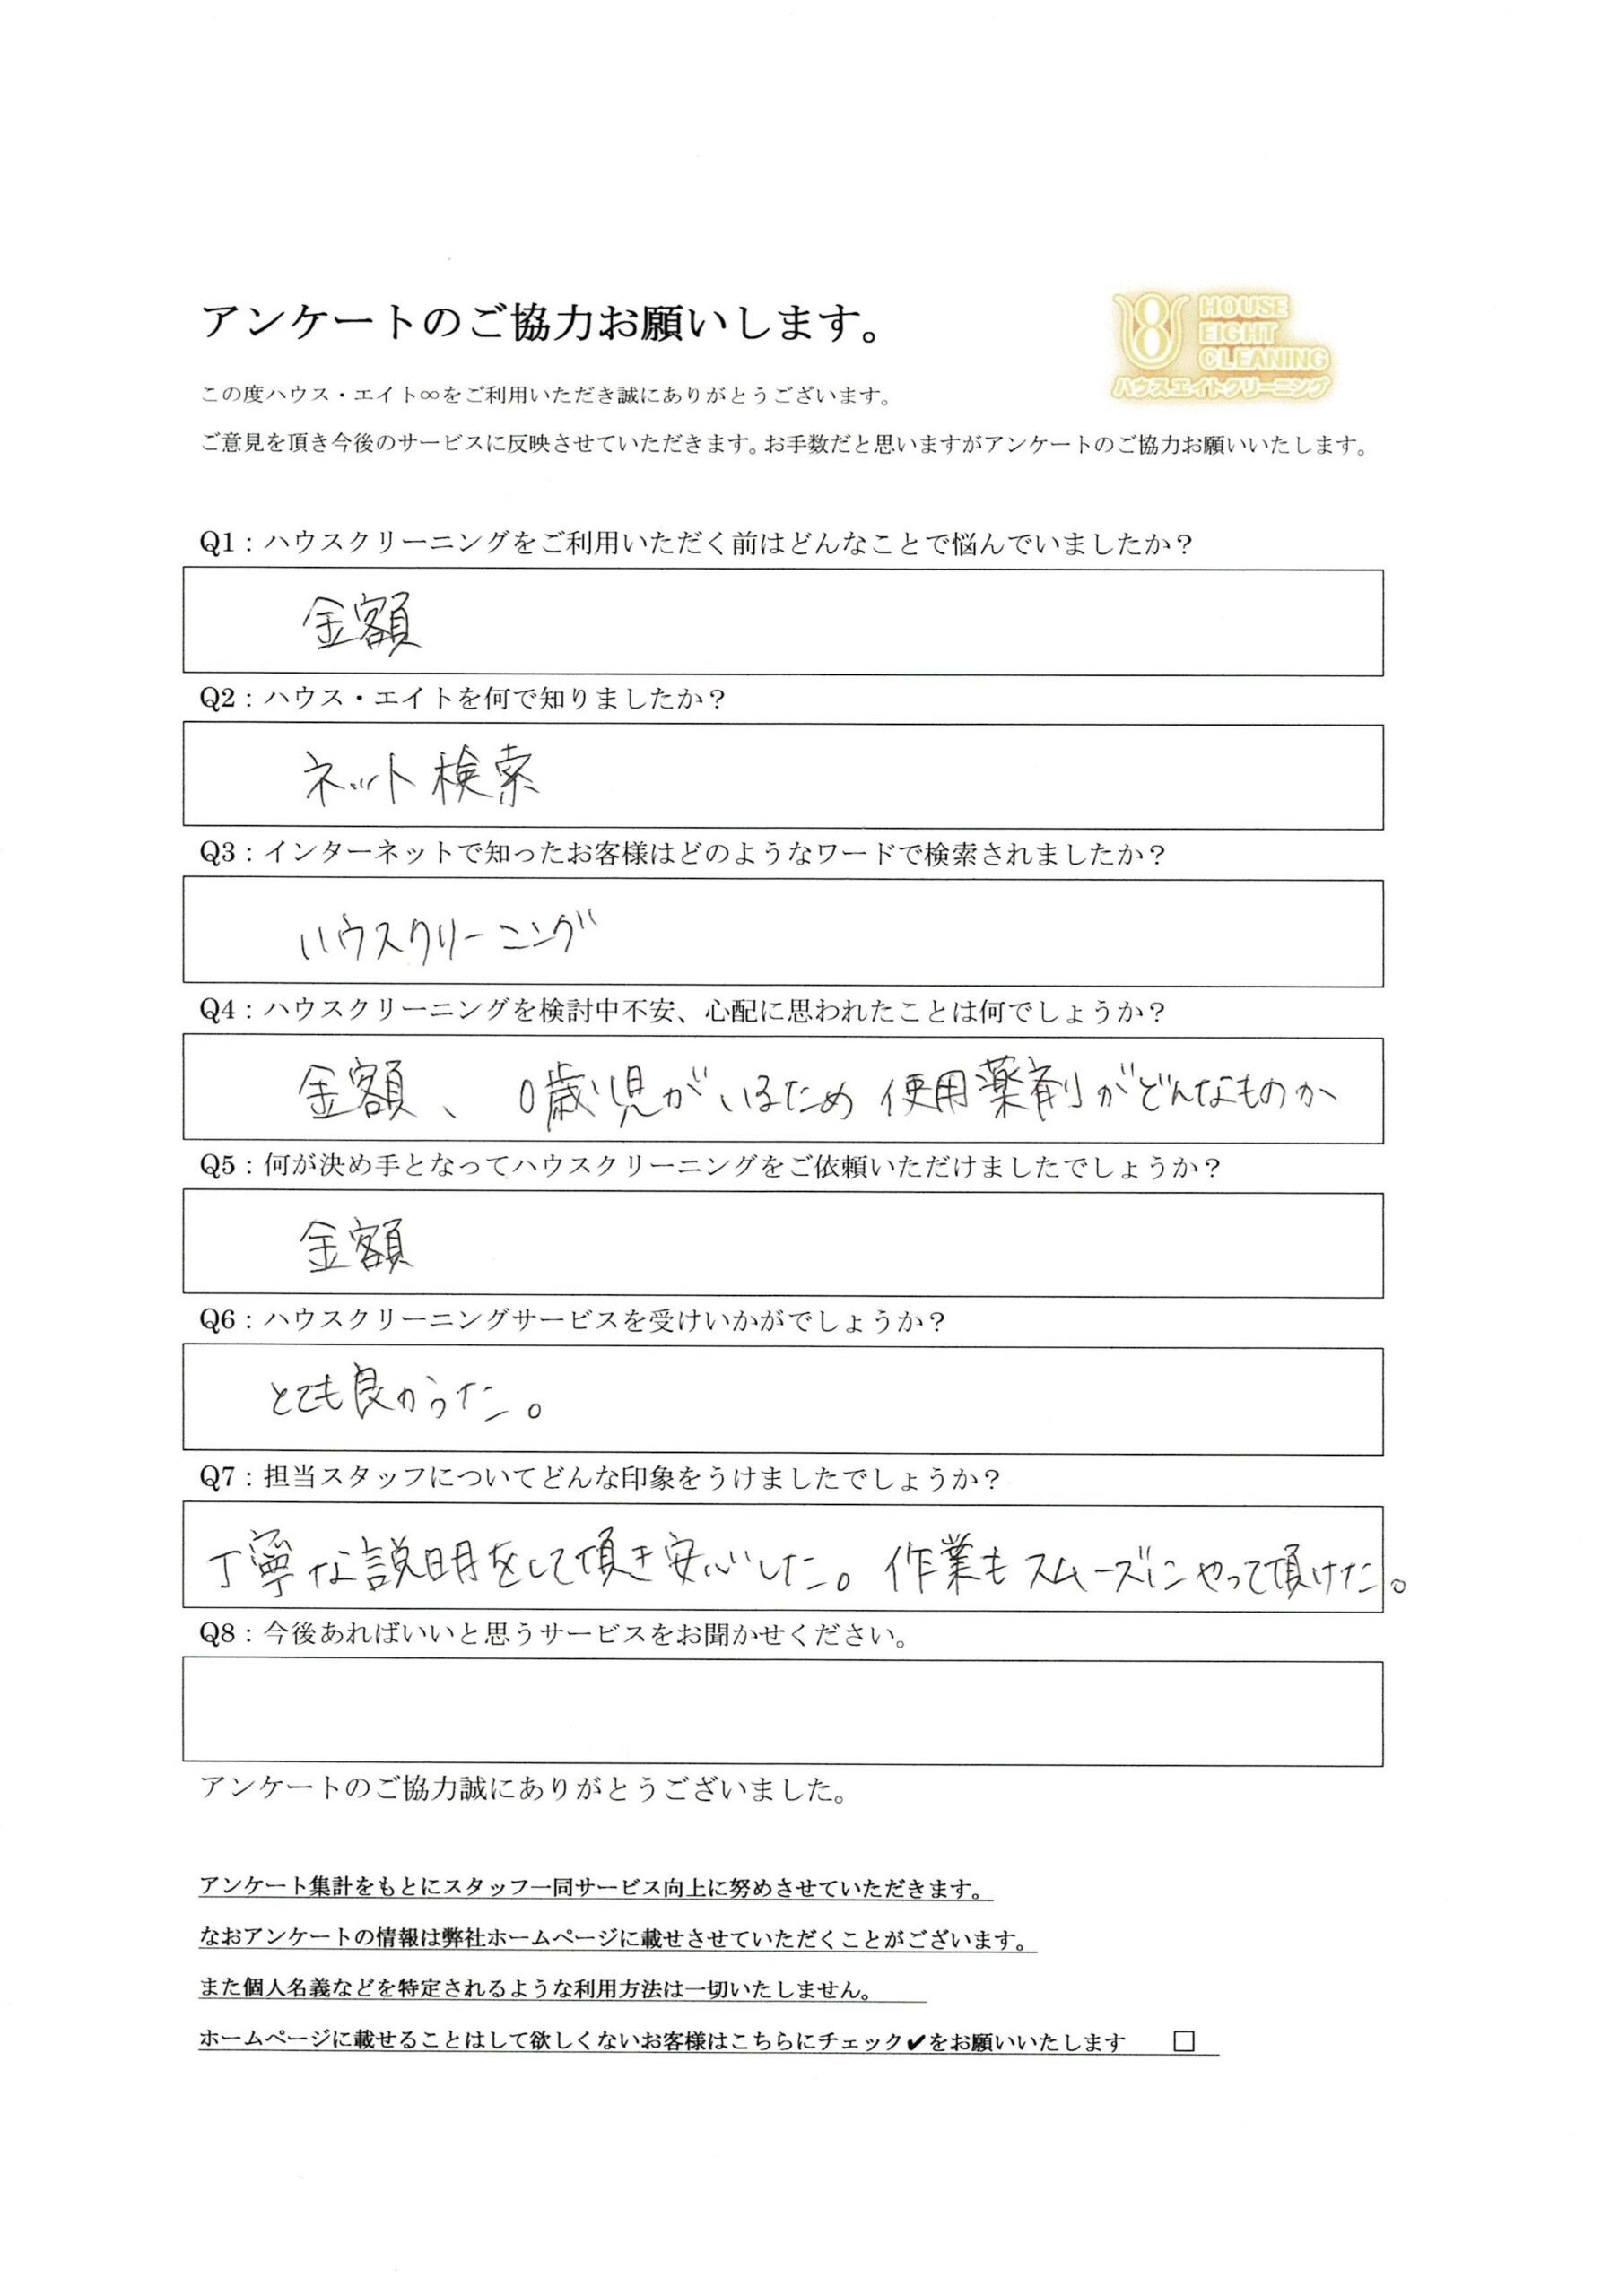 アンケートのご協力お願いします。
HOUSE
EIGHT
CLEANING
ハウスエイトクリーニング
この度ハウス・エイト∞をご利用いただき誠にありがとうございます。
ご意見を頂き今後のサービスに反映させていただきます。お手数だと思いますがアンケートのご協力お願いいたします。
Q1：ハウスクリーニングをご利用いただく前はどんなことで悩んでいましたか？
金額
Q2：ハウス・エイトを何で知りましたか？
ネット検索
Q3：インターネットで知ったお客様はどのようなワードで検索されましたか？
ハウスクリーニング
Q4：ハウスクリーニングを検討中不安、心配に思われたことは何でしょうか？
金額、0歳児がいるため使用薬剤がどんなものか
Q5：何が決め手となってハウスクリーニングをご依頼いただけましたでしょうか？
金額
Q6：ハウスクリーニングサービスを受けいかがでしょうか？
とても良かった。
Q7：担当スタッフについてどんな印象をうけましたでしょうか？
丁寧な説明をして頂き安心した。作業もスムーズにやって頂けた。
Q8：今後あればいいと思うサービスをお聞かせください。
アンケートのご協力誠にありがとうございました。
アンケート集計をもとにスタッフ一同サービス向上に努めさせていただきます。
なおアンケートの情報は弊社ホームページに載せさせていただくことがございます。
また個人名義などを特定されるような利用方法は一切いたしません。
ホームページに載せることはして欲しくないお客様はこちらにチェック✔をお願いいたします □